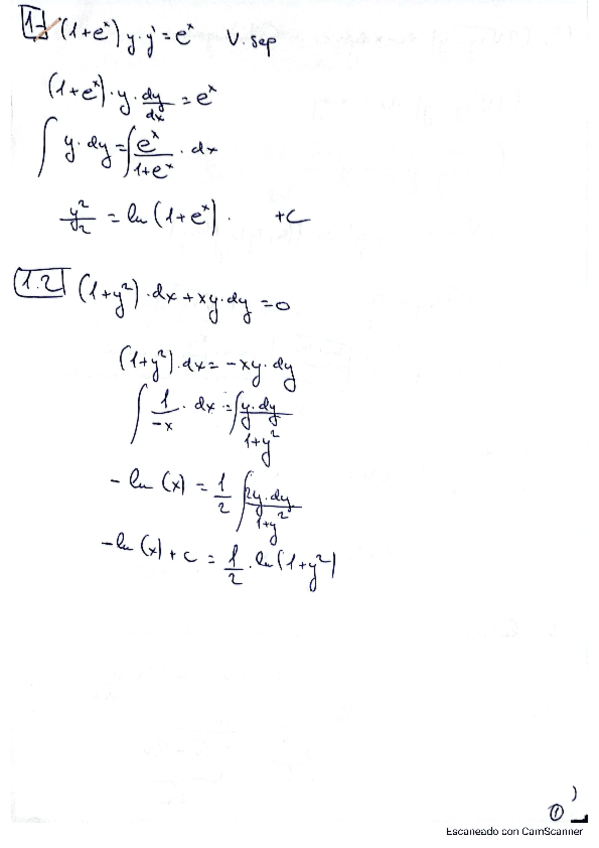 1.- (1+e^x) y·y' = e^x V. sep
(1+e^x)·y·dy/dx = e^x
∫ y·dy = ∫ e^x/(1+e^x) · dx
y²/2 = ln (1+e^x) · +C
1.2 (1+y²)·dx + xy·dy = 0
(1+y²)·dx = -xy·dy
∫ 1/-x · dx = ∫ y·dy/(1+y²)
-ln (x) = 1/2 ∫ 2y·dy/(1+y²)
-ln (x) + C = 1/2 · ln (1+y²)
①
Escaneado con CamScanner